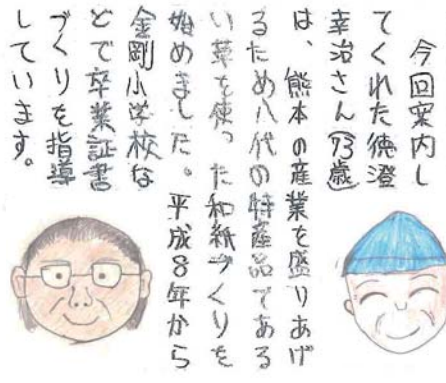 今回案内し
てくれた徳澄
幸治さん(73歳)
は、熊本の産業を盛りあげ
るため八代の特産品である
い草を使った和紙づくりを
始めました。平成8年から
金剛小学校な
どで卒業証書
づくりを指導
しています。